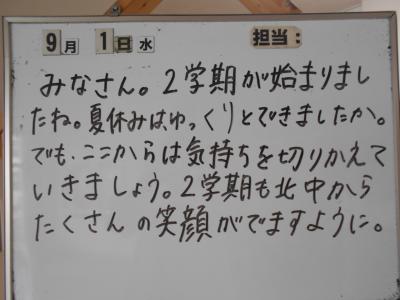 9月 1日水 担当:
みなさん。2学期が始まりまし
たね。夏休みはゆっくりとできましたか。
でも、ここからは気持ちを切りかえて
いきましょう。2学期も北中から
たくさんの笑顔がでますように。